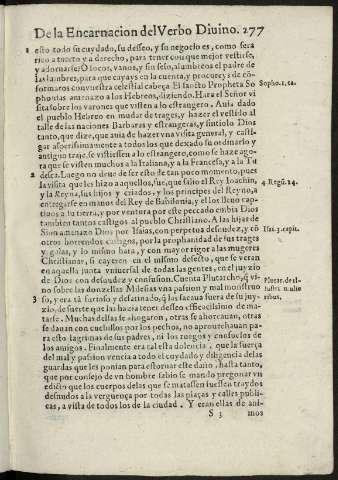 De la Encarnacion del Verbo Diuino. 277
1 esto todo su cuydado, su desseo, y su negocio es, como sera
rico a tuerto y a derecho, para tener con que mejor vestirse,
y adornarse? O locos, vanos, y sin seso, alumbreos el padre de
las lumbres, para que cayays en la cuenta, y procureys de cõ-
formaros con vuestra celestial cabeça. El sancto Propheta So
Sopho. 1. ca.
phonias amenazo a los Hebreos, diziendo. Hara el Señor vi
sita sobre los varones que visten a lo estrangero. Auia dado
el pueblo Hebreo en mudar de trages, y hazer el vestido al
talle de las naciones Barbaras y estrangeras, y sintiolo Dios
tanto, que dize, que auia de hazer vna visita general, y casti-
gar asperissimamente a todos los que dexado su ordinario y
antiguo traje, se vistiessen a lo estrangero, como se haze ago-
ra que se visten muchos a la Italiana, y a la Francesa, y a la Tu
2 desca. Luego no deue de ser esto de tan poco momento, pues
la visita que les hizo a aquellos, fue, que salio el Rey Ioachin,
4. Regũ. 24.
y la Reyna, sus hijos y criados, y los principes del Reyno, a
entregarse en manos del Rey de Babilonia, y el los lleuo cap-
tiuos a su tierra, y por ventura por este peccado embia Dios
tambien tantos castigos al pueblo Christiano. A las hijas de
Sion amenazo Dios por Isaias, con perpetua desnudez, y cõ
Isai. 3. capit.
otros horrendos castigos, por la prophanidad de sus trages
y galas, y lo mismo hara, y con mayor rigor a las mugeres
Christianas, si cayeren en el mismo defecto, que se veran
en aquella junta vniuersal de todas las gentes, en el juyzio
de Dios con desnudez y confusion. Cuenta Plutarcho, q̃ vi-
no sobre las donzellas Milesias vna passion y mal monstruo
3 so, y era tã furioso y desatinado, q̃ las sacaua fuera de su juy-
zio, de suerte que las hazia tener desseo efficacissimo de ma-
tarse. Muchas dellas se ahogaron, otras se ahorcauan, otras
se dauan con cuchillos por los pechos, no aprouechauan pa-
ra esto lagrimas de sus padres, ni los ruegos y consuelos de
los amigos. Finalmente era tal esta dolencia, que la fuerça
del mal y passion vencia a todo el cuydado y diligencia delas
guardas que les ponian para estoruar este daño, hasta tanto,
que por consejo de vn hombre sabio se mando pregonar vn
edicto que los cuerpos delas que se matassen fuessen traydos
desnudos a la verguença por todas las plaças y calles publi-
cas, a vista de todos los de la ciudad. Y eran ellas de ani-
S 3 mos